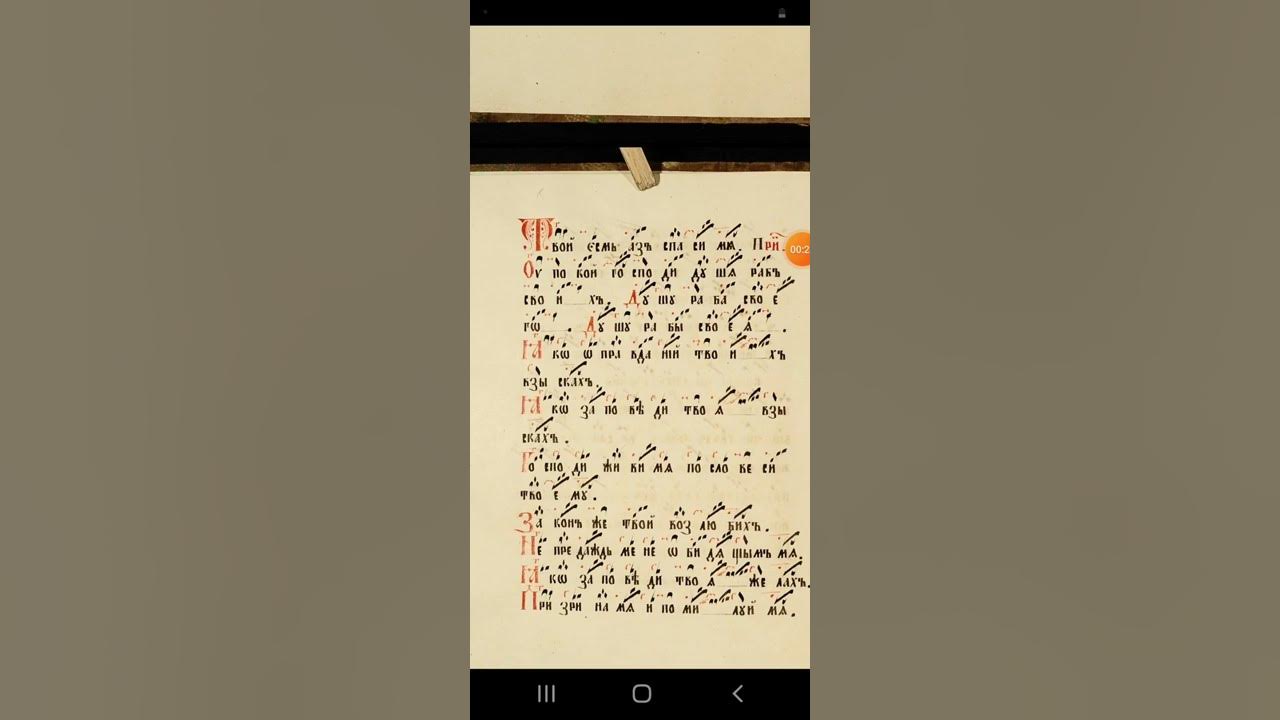 Твой є҆смь а҆зъ спа си мѧ. При.
Оу҆ по кой го спо ди дѹ шѧ рабъ
сво и хъ. Дѹ шѹ ра ба сво е
гѡ . Дѹ шѹ ра бы сво е ѧ .
Ꙗ кѡ ѡ пра вда ній тво и хъ
взы скахъ.
Ꙗ кѡ за по вѣ ди тво ѧ взы
скахъ .
Го спо ди жи ви мѧ по сло ве си
тво е мꙋ .
За конъ же твой воз лю бихъ .
Не пре даждь ме не ѡ би дѧ щымъ мѧ.
Ꙗ кѡ за по вѣ ди тво ѧ же лахъ.
При зри на мѧ и по ми луй мѧ.
00:2